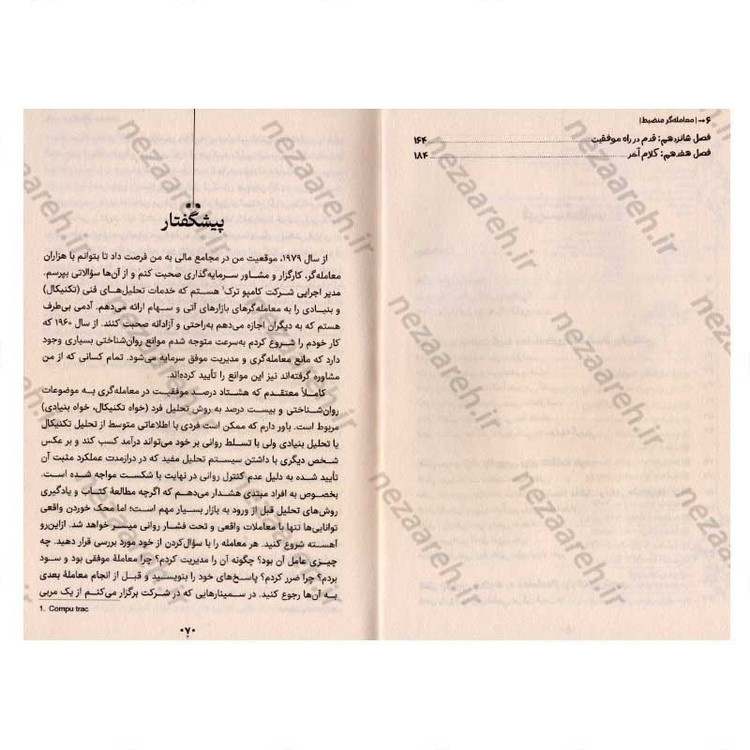 ۶ → | معامله‌گر منضبط |
فصل شانزدهم: قدم در راه موفقیت ۱۶۴
فصل هفدهم: کلام آخر ۱۸۴
پیشگفتار
از سال ۱۹۷۹، موقعیت من در مجامع مالی به من فرصت داد تا بتوانم با هزاران
معامله‌گر، کارگزار و مشاور سرمایه‌گذاری صحبت کنم و از آن‌ها سؤالاتی بپرسم.
مدیر اجرایی شرکت کامپو ترک۱ هستم که خدمات تحلیل‌های فنی (تکنیکال)
و بنیادی را به معامله‌گرهای بازارهای آتی و سهام ارائه می‌دهم. آدمی بی‌طرف
هستم که به دیگران اجازه می‌دهم به‌راحتی و آزادانه صحبت کنند. از سال ۱۹۶۰ که
کار خودم را شروع کردم به‌سرعت متوجه شدم موانع روان‌شناختی بسیاری وجود
دارد که مانع معامله‌گری و مدیریت موفق سرمایه می‌شود. تمام کسانی که از من
مشاوره گرفته‌اند نیز این موانع را تأیید کرده‌اند.
کاملاً معتقدم که هشتاد درصد موفقیت در معامله‌گری به موضوعات
روان‌شناختی و بیست درصد به روش تحلیل فرد (خواه تکنیکال، خواه بنیادی)
مربوط است. باور دارم که ممکن است فردی با اطلاعاتی متوسط از تحلیل تکنیکال
یا تحلیل بنیادی ولی با تسلط روانی بر خود می‌تواند درآمد کسب کند و بر عکس
شخص دیگری با داشتن سیستم تحلیل مفید که در درازمدت عملکرد مثبت آن
تأیید شده به دلیل عدم کنترل روانی در نهایت با شکست مواجه شده است.
بخصوص به افراد مبتدی هشدار می‌دهم که اگرچه مطالعهٔ کتاب و یادگیری
روش‌های تحلیل قبل از ورود به بازار بسیار مهم است؛ اما محک خوردن واقعی
توانایی‌ها تنها با معاملات واقعی و تحت فشار روانی میسر خواهد شد. ازاین‌رو
آهسته شروع کنید. هر معامله را با سؤال‌کردن از خود مورد بررسی قرار دهید. چه
چیزی عامل آن بود؟ چگونه آن را مدیریت کردم؟ چرا معاملهٔ موفقی بود و سود
بردم؟ چرا ضرر کردم؟ پاسخ‌های خود را بنویسید و قبل از انجام معاملهٔ بعدی
به آن‌ها رجوع کنید. در سمینارهایی که در شرکت برگزار می‌کنم از یک مربی
1. Compu trac
۰۷۰
nezaareh.ir
nezaareh.ir
nezaareh.ir
nezaareh.ir
nezaareh.ir
nezaareh.ir
nezaareh.ir
nezaareh.ir